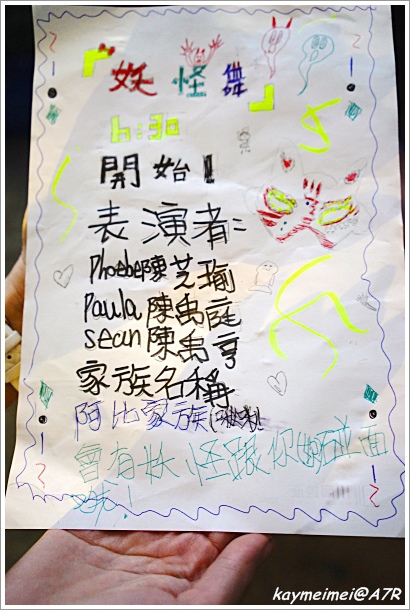 『妖怪舞』
6:30
開始！
表演者：
Phoebe陳芝瑜
Paula陳禹庭
sean陳禹亨
家族名稱
阿比家族
會有妖怪跟你們碰面
kaymeimei@A7R